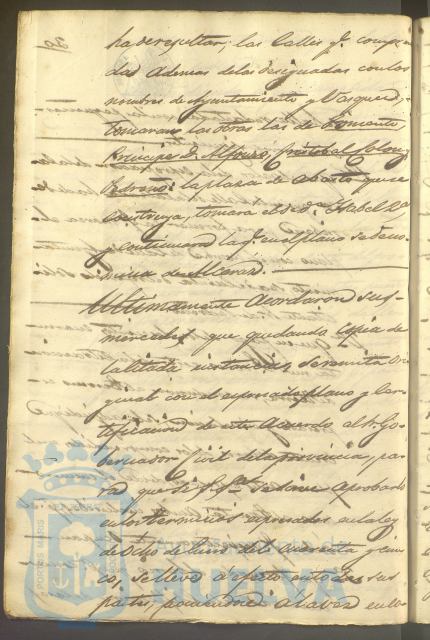 20
ha de resultar, las Calles q.e compren-
da Ademas de las designadas con los
nombres de Ayuntamiento y Vasquez,
tomaran las otras las de Fomento,
Principe D. Alfonso, Cristobal Colon y
la plaza de abasto que se
construya, tomara el de D.a Isabel 2.a
y continuara la q.e en el plano se deno-
mina de Alcaraz.
Ultimamente Acordaron sus
mercedes que quedando Copia de
la citada instancia, se remita ori-
ginal con el espresado plano y Cer-
tificacion de este Acuerdo al Sr. Go-
bernador Civil de la provincia, pa-
ra que si S. S.a se sirve Aprobarlo
en los terminos espresados en la ley
de Ocho de Enero del Cuarenta y cin-
co, se lleve á efecto en todas sus
partes, á
PORTUS MARIS
Ayuntamiento de
HUELVA